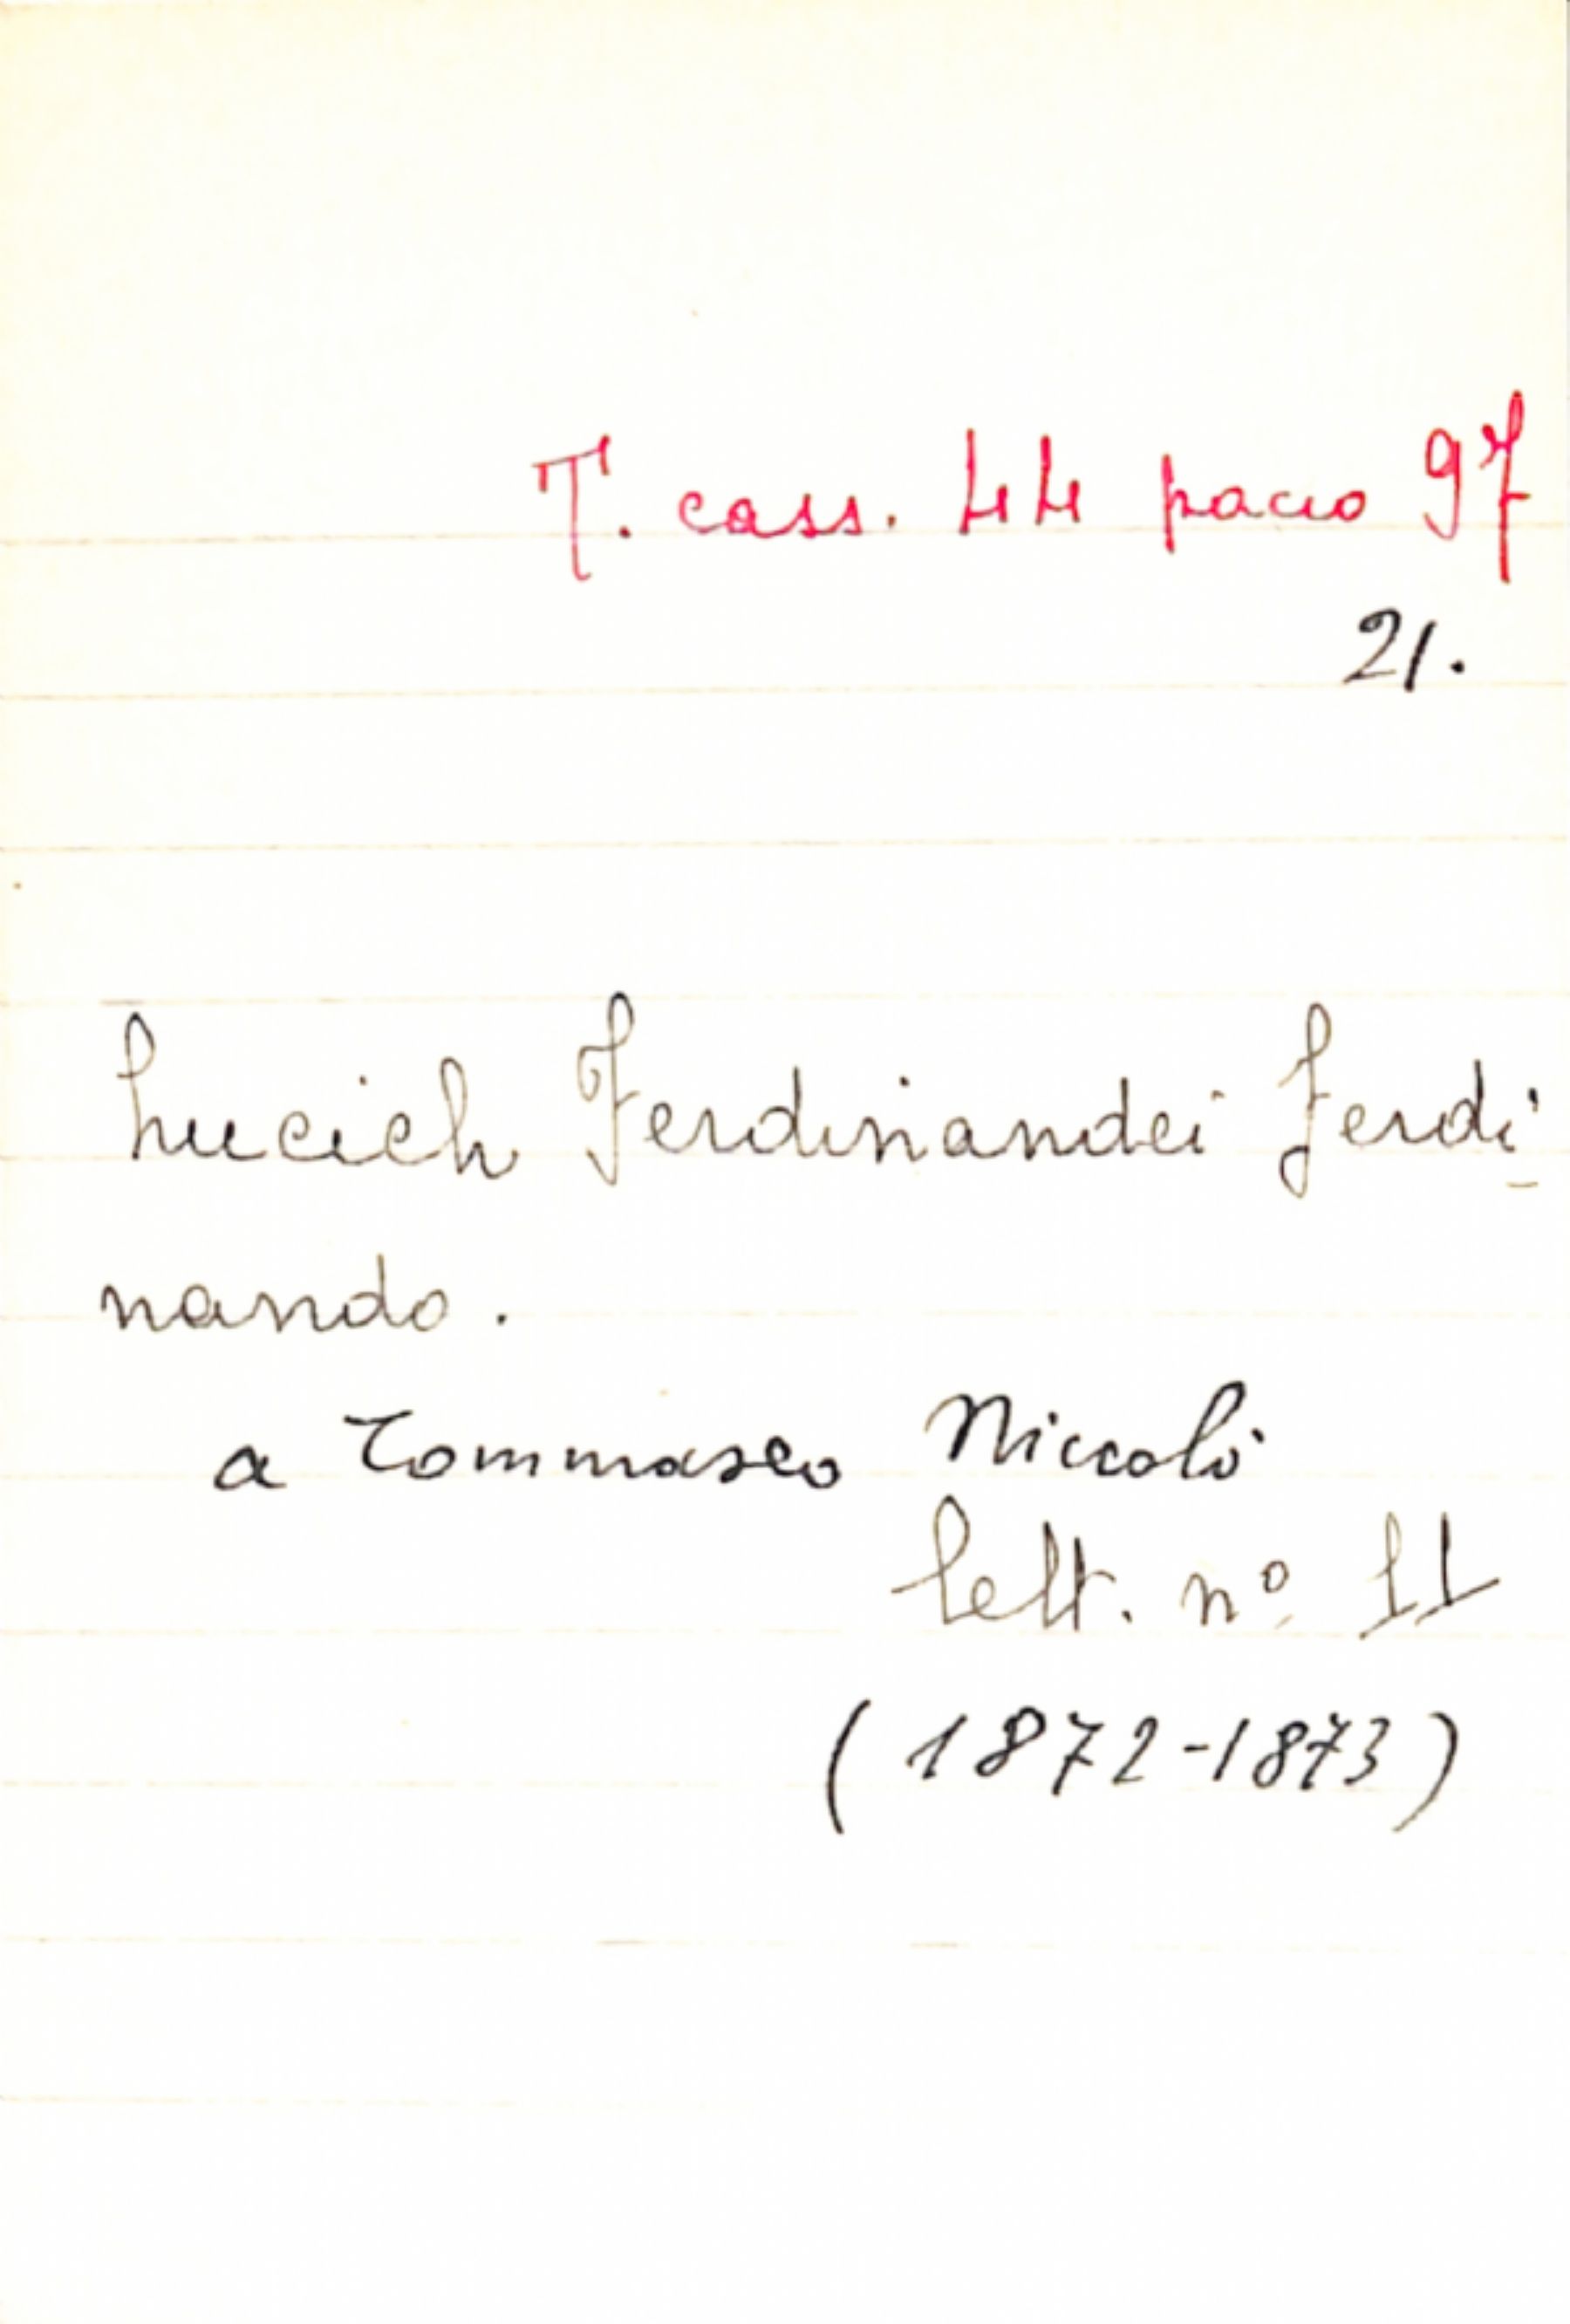 T. cass. 44 pacco 97
21.
Lucich Ferdinandei Ferdi-
nando.
a Tommaseo Niccolò
lett. nº 11
(1872-1873)